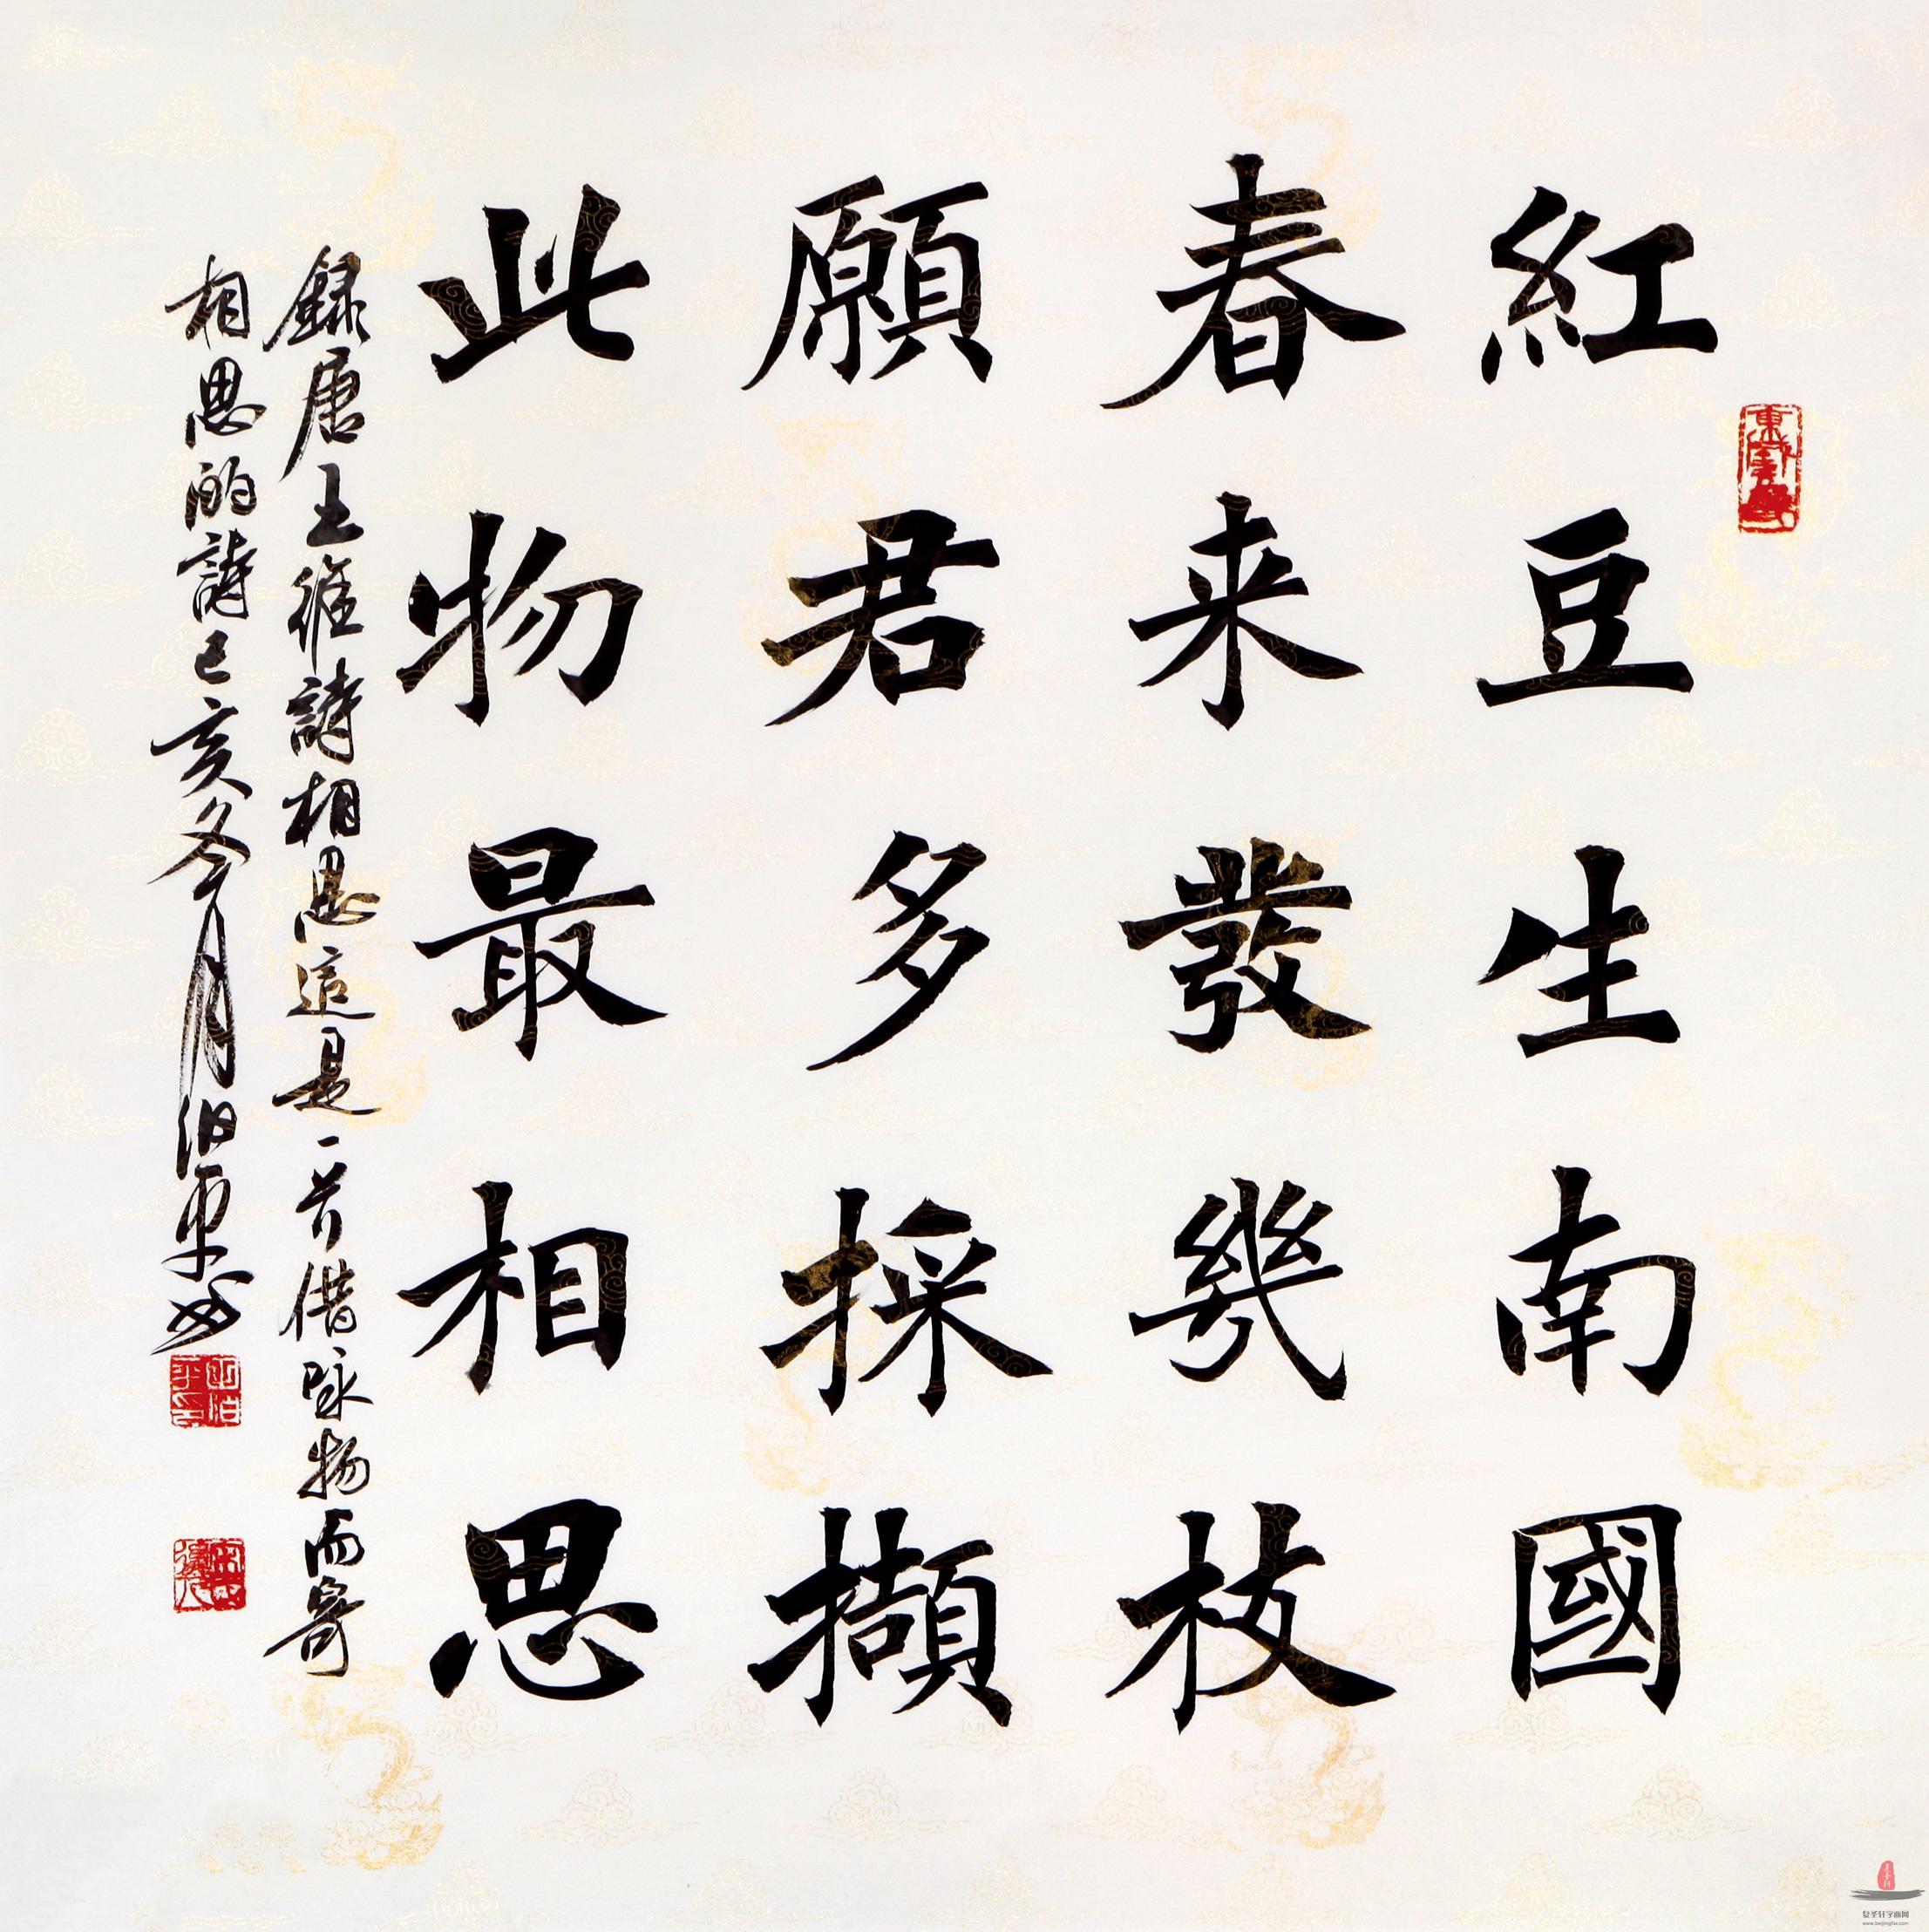 紅豆生南國
春来發幾枝
願君多採擷
此物最相思
録唐王維詩相思這是一首借咏物而寄
相思的詩己亥冬月伯平书
复圣轩字画网
www.beijingfsx.com